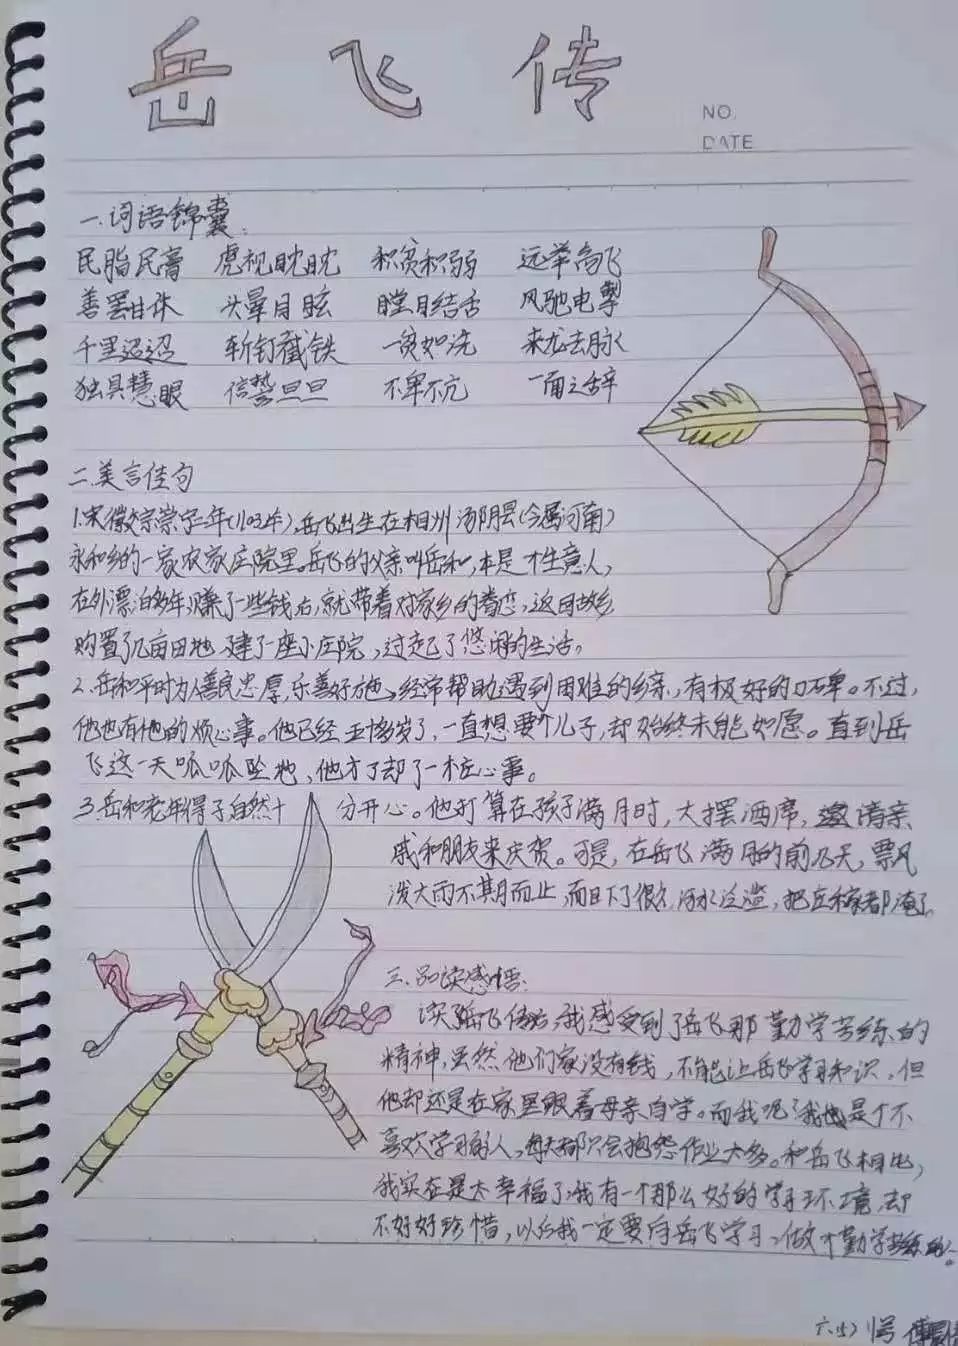 岳飞传
NO.
DATE
一.词语锦囊:
民脂民膏 虎视眈眈 积贫积弱 远举高飞
善罢甘休 头晕目眩 瞠目结舌 风驰电掣
千里迢迢 斩钉截铁 一贫如洗 来龙去脉
独具慧眼 信誓旦旦 不卑不亢 一面之辞
二.美言佳句
1.宋徽宗崇宁二年(1103年),岳飞出生在相州汤阴县(今属河南)
永和乡的一家农家庄院里。岳飞的父亲叫岳和,本是个生意人,
在外漂泊多年,赚了一些钱后,就带着对家乡的眷恋,返回故乡
购置了几亩田地,建了一座小庄院,过起了悠闲的生活。
2.岳和平时为人善良忠厚,乐善好施,经常帮助遇到困难的乡亲,有极好的口碑。不过,
他也有他的烦心事。他已经五十多岁了,一直想要个儿子,却始终未能如愿。直到岳
飞这一天呱呱坠地,他才了却了一桩心事。
3.岳和老年得子,自然十分开心。他打算在孩子满月时,大摆酒席,邀请亲
戚和朋友来庆贺。可是,在岳飞满月的前几天,票风
泼大雨不期而止,而且下了很久,河水泛滥,把庄稼都淹了。
三.品读感悟:
读《岳飞传》后,我感受到了岳飞那勤学苦练的
精神,虽然他们家没有钱,不能让岳飞学习知识,但
他却还是在家里跟着母亲自学。而我呢?我也是个不
喜欢学习的人,每天都只会抱怨作业太多。和岳飞相比,
我实在是太幸福了,我有一个那么好的学习环境,却
不好好珍惜,以后我一定要向岳飞学习,做个勤学苦练的人。
六.(5) 1号 傅